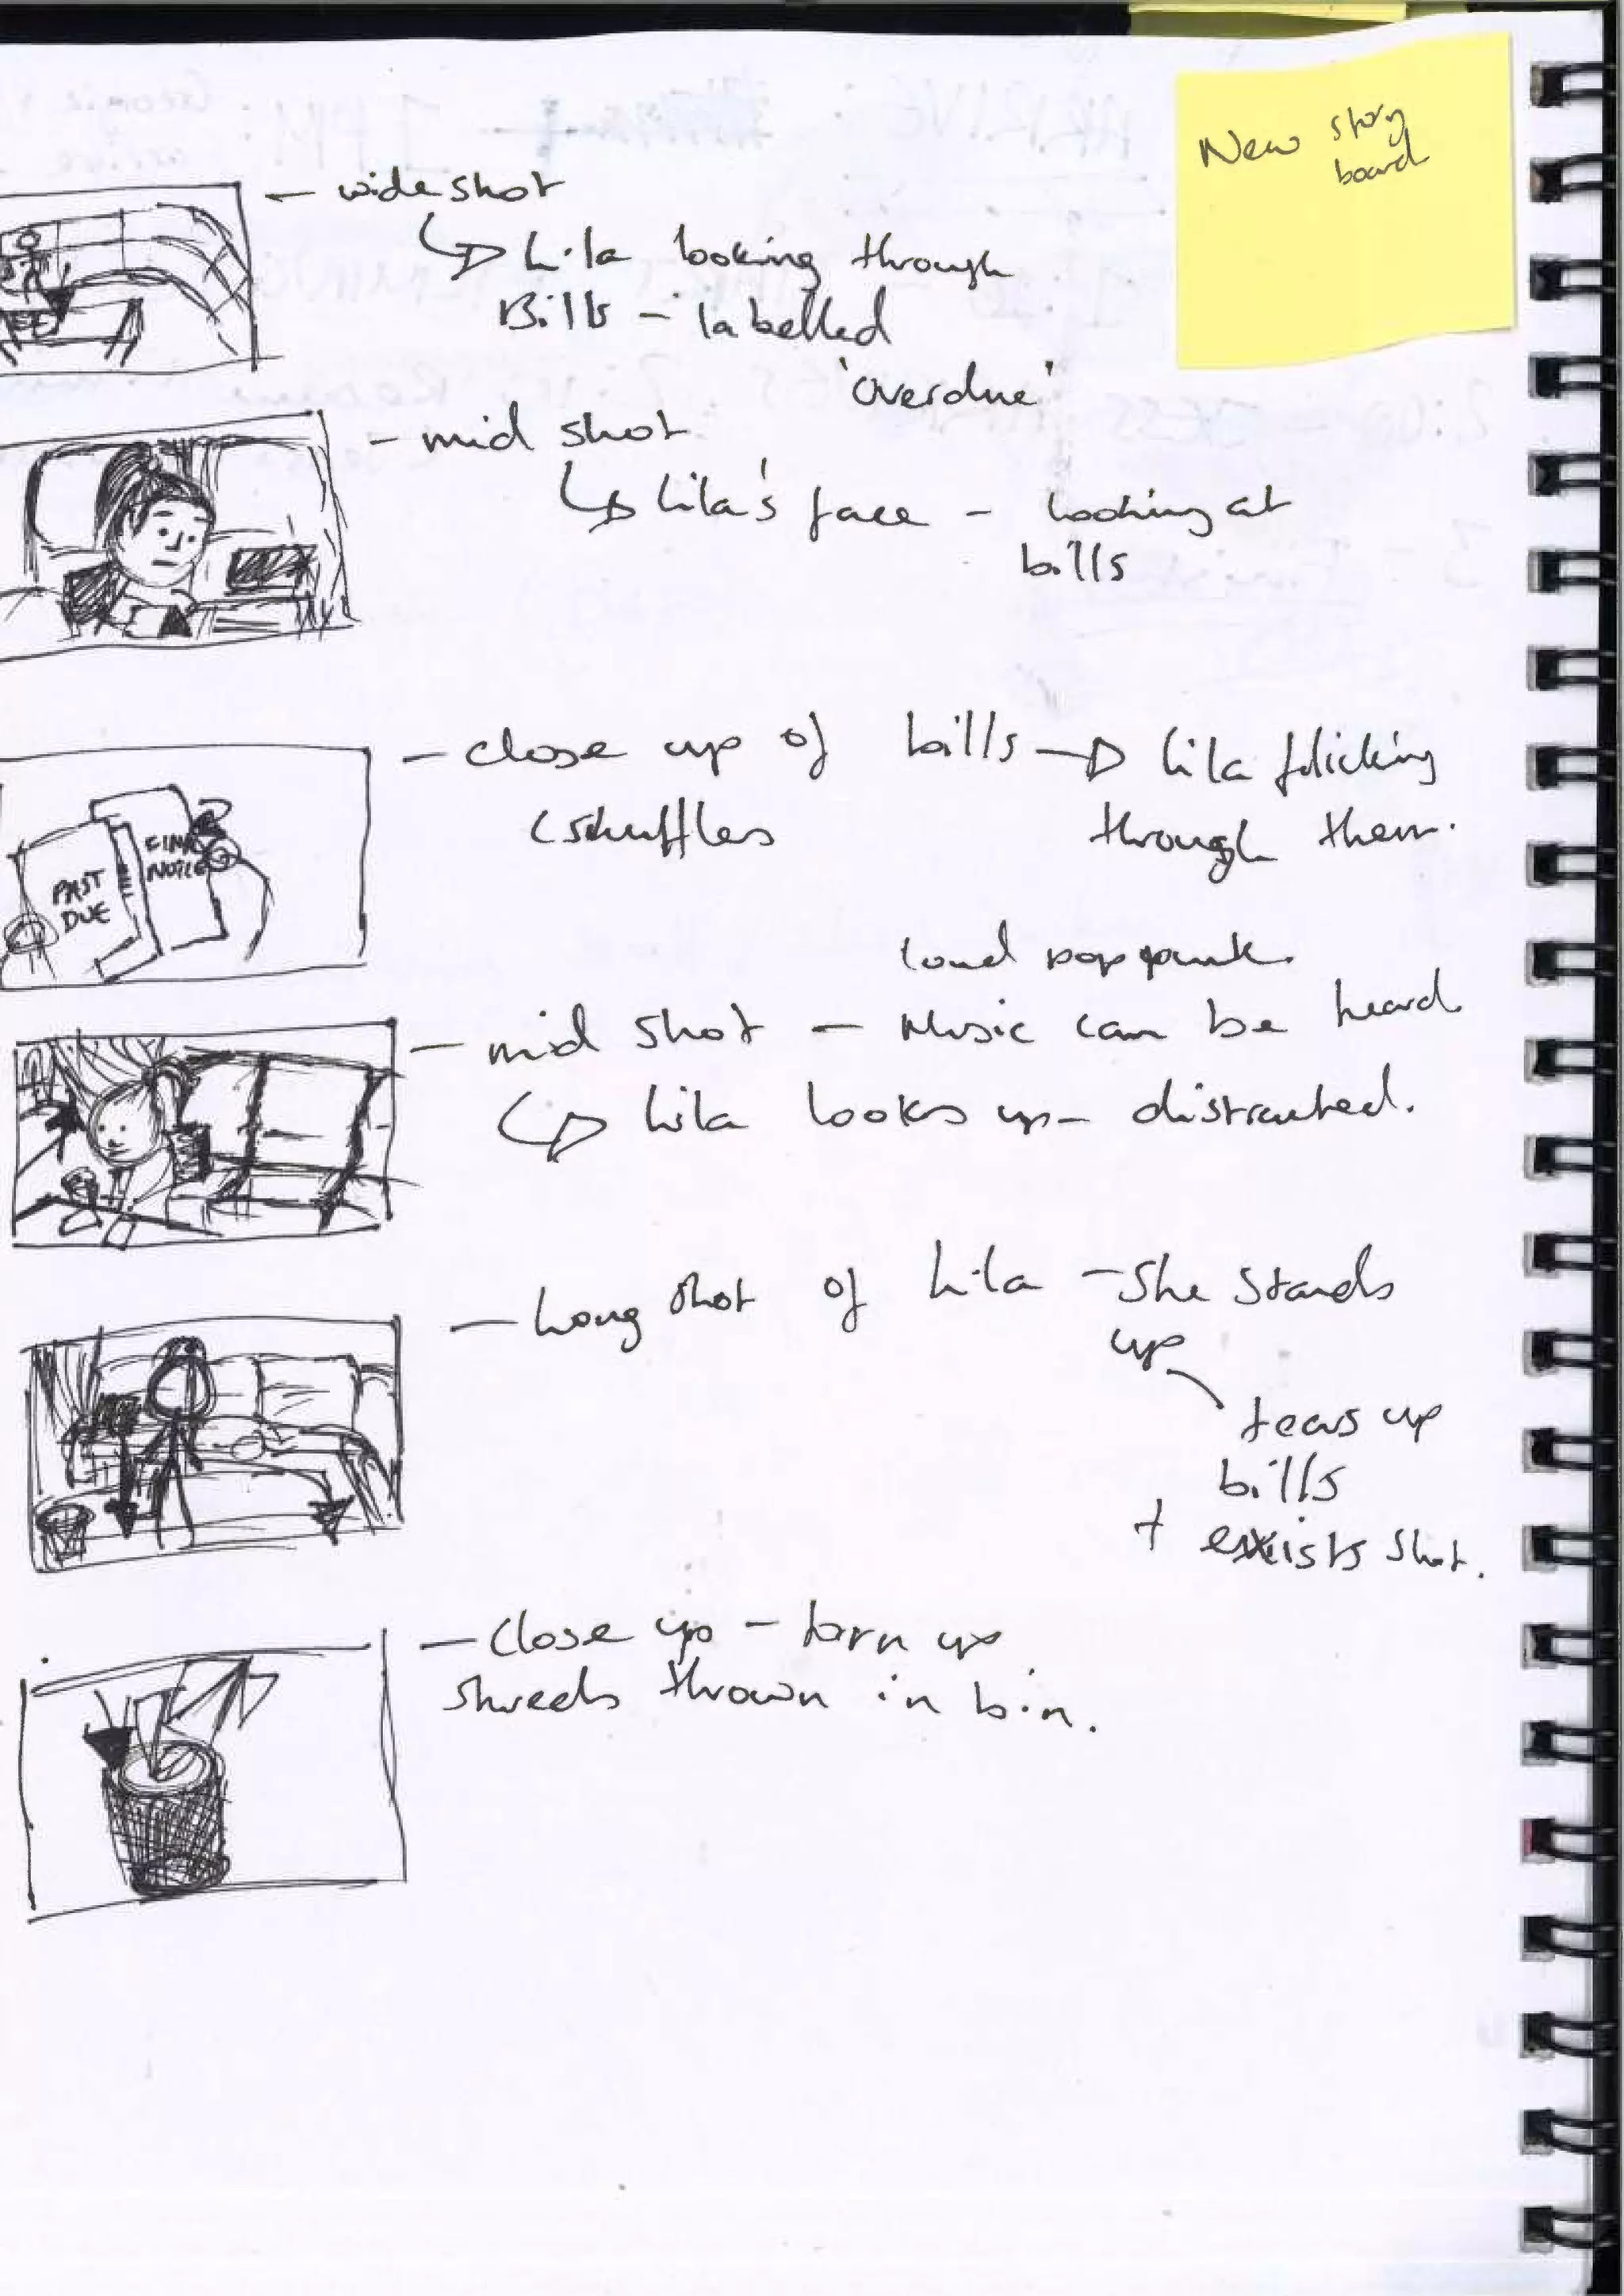 New story
board
— wide shot
↳ Lila looking through
Bills – labelled
'overdue'
– mid shot
↳ Lila's face – looking at
bills
– close up of bills → Lila flicking
(shuffles through them.
PAST
DUE
FINAL
NOTICE
loud pop punk.
– mid shot – Music can be heard
↳ Lila looks up – distracted.
– Long shot of Lila – She stands
up
tears up
bills
+ exists shot.
– close up – torn up
shreds thrown in bin.